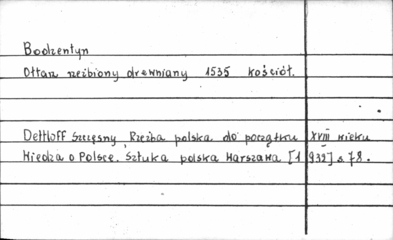 Bodzentyn
Ołtarz rzeźbiony drewniany 1535 kościół.
Dettloff Szczęsny, Rzeźba polska do początku XVIII wieku
Wiedza o Polsce. Sztuka polska Warszawa [1932] s 78.